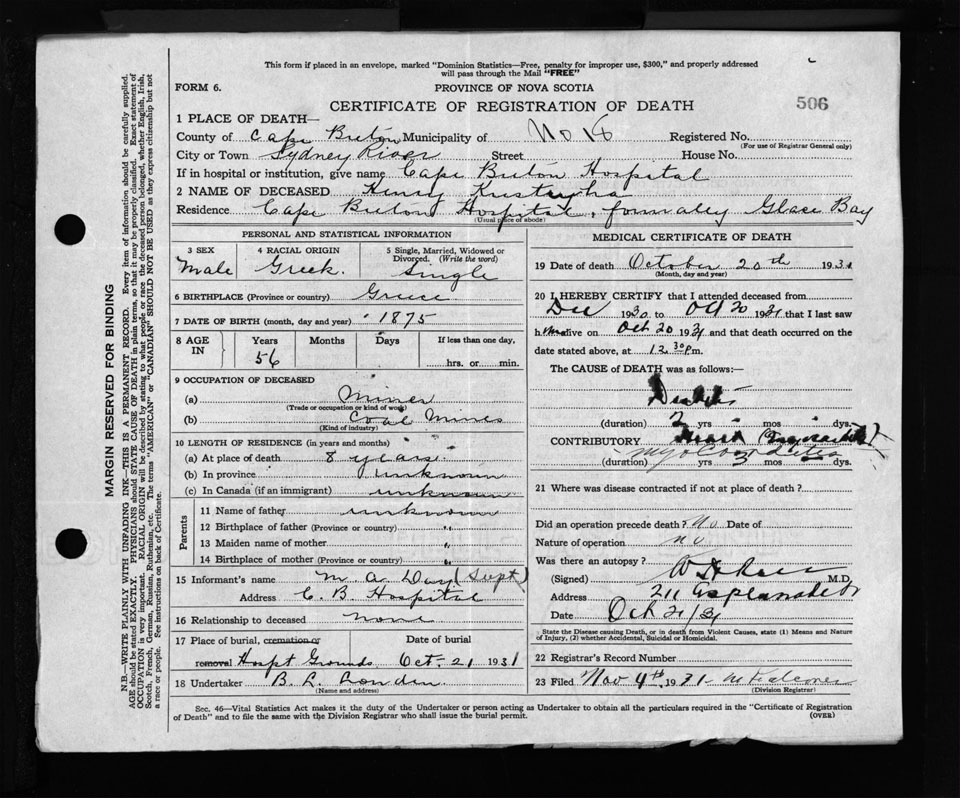 This form if placed in an envelope, marked "Dominion Statistics—Free, penalty for improper use, $300," and properly addressed
will pass through the Mail "FREE"
FORM 6.
PROVINCE OF NOVA SCOTIA
CERTIFICATE OF REGISTRATION OF DEATH
506
1 PLACE OF DEATH—
County of Cape Breton Municipality of No 16 Registered No.
(For use of Registrar General only)
City or Town Sydney River Street House No.
If in hospital or institution, give name Cape Breton Hospital
2 NAME OF DECEASED Henry
Residence Cape Breton Hospital, formally Glace Bay
(Usual place of abode)
PERSONAL AND STATISTICAL INFORMATION
3 SEX 4 RACIAL ORIGIN 5 Single, Married, Widowed or
Divorced. (Write the word)
Male Greek. Single
6 BIRTHPLACE (Province or country) Greece
7 DATE OF BIRTH (month, day and year) 1875
8 AGE IN Years Months Days If less than one day,
56 hrs. or min.
9 OCCUPATION OF DECEASED
(a) Miner
(Trade or occupation or kind of work)
(b) Coal Mines
(Kind of industry)
10 LENGTH OF RESIDENCE (in years and months)
(a) At place of death 8 years.
(b) In province unknown
(c) In Canada (if an immigrant) unknown
Parents
11 Name of father unknown
12 Birthplace of father (Province or country) "
13 Maiden name of mother "
14 Birthplace of mother (Province or country) "
15 Informant's name M. A. Day (Supt)
Address C. B. Hospital
16 Relationship to deceased None
17 Place of burial, cremation or Date of burial
removal Hospt Grounds Oct- 21 1931
18 Undertaker B. L.
(Name and address)
MEDICAL CERTIFICATE OF DEATH
19 Date of death October 20th 1931
(Month, day and year)
20 I HEREBY CERTIFY that I attended deceased from
Dec 1930 to Oct 20 1931 that I last saw
h alive on Oct 20 1931 and that death occurred on
date stated above, at 12 30 p m.
The CAUSE of DEATH was as follows:—
(duration) yrs mos dys.
CONTRIBUTORY
(duration) yrs 3 mos dys.
21 Where was disease contracted if not at place of death?
Did an operation precede death? No Date of
Nature of operation no
Was there an autopsy?
(Signed) M.D.
Address 211 Esplanade
Date Oct 21/31
State the Disease causing Death, or in death from Violent Causes, state (1) Means and Nature
of Injury, (2) whether Accidental, Suicidal or Homicidal.
22 Registrar's Record Number
23 Filed Nov 4th 1931
(Division Registrar)
Sec. 46—Vital Statistics Act makes it the duty of the Undertaker or person acting as Undertaker to obtain all the particulars required in the "Certificate of Registration
of Death" and to file the same with the Division Registrar who shall issue the burial permit.
(OVER)
MARGIN RESERVED FOR BINDING
N.B.—WRITE PLAINLY WITH UNFADING INK—THIS IS A PERMANENT RECORD. Every item of information should be carefully supplied.
AGE should be stated EXACTLY. PHYSICIANS should STATE CAUSE OF DEATH in plain terms, so that it may be properly classified. Exact statement of
OCCUPATION is very important. RACIAL ORIGIN will be described by stating to what people or race the deceased person belonged, whether English, Irish,
Scotch, French, German, Russian, Ruthenian, etc. The terms "AMERICAN" or "CANADIAN" SHOULD NOT BE USED as they express citizenship but not
a race or people. See instructions on back of Certificate.